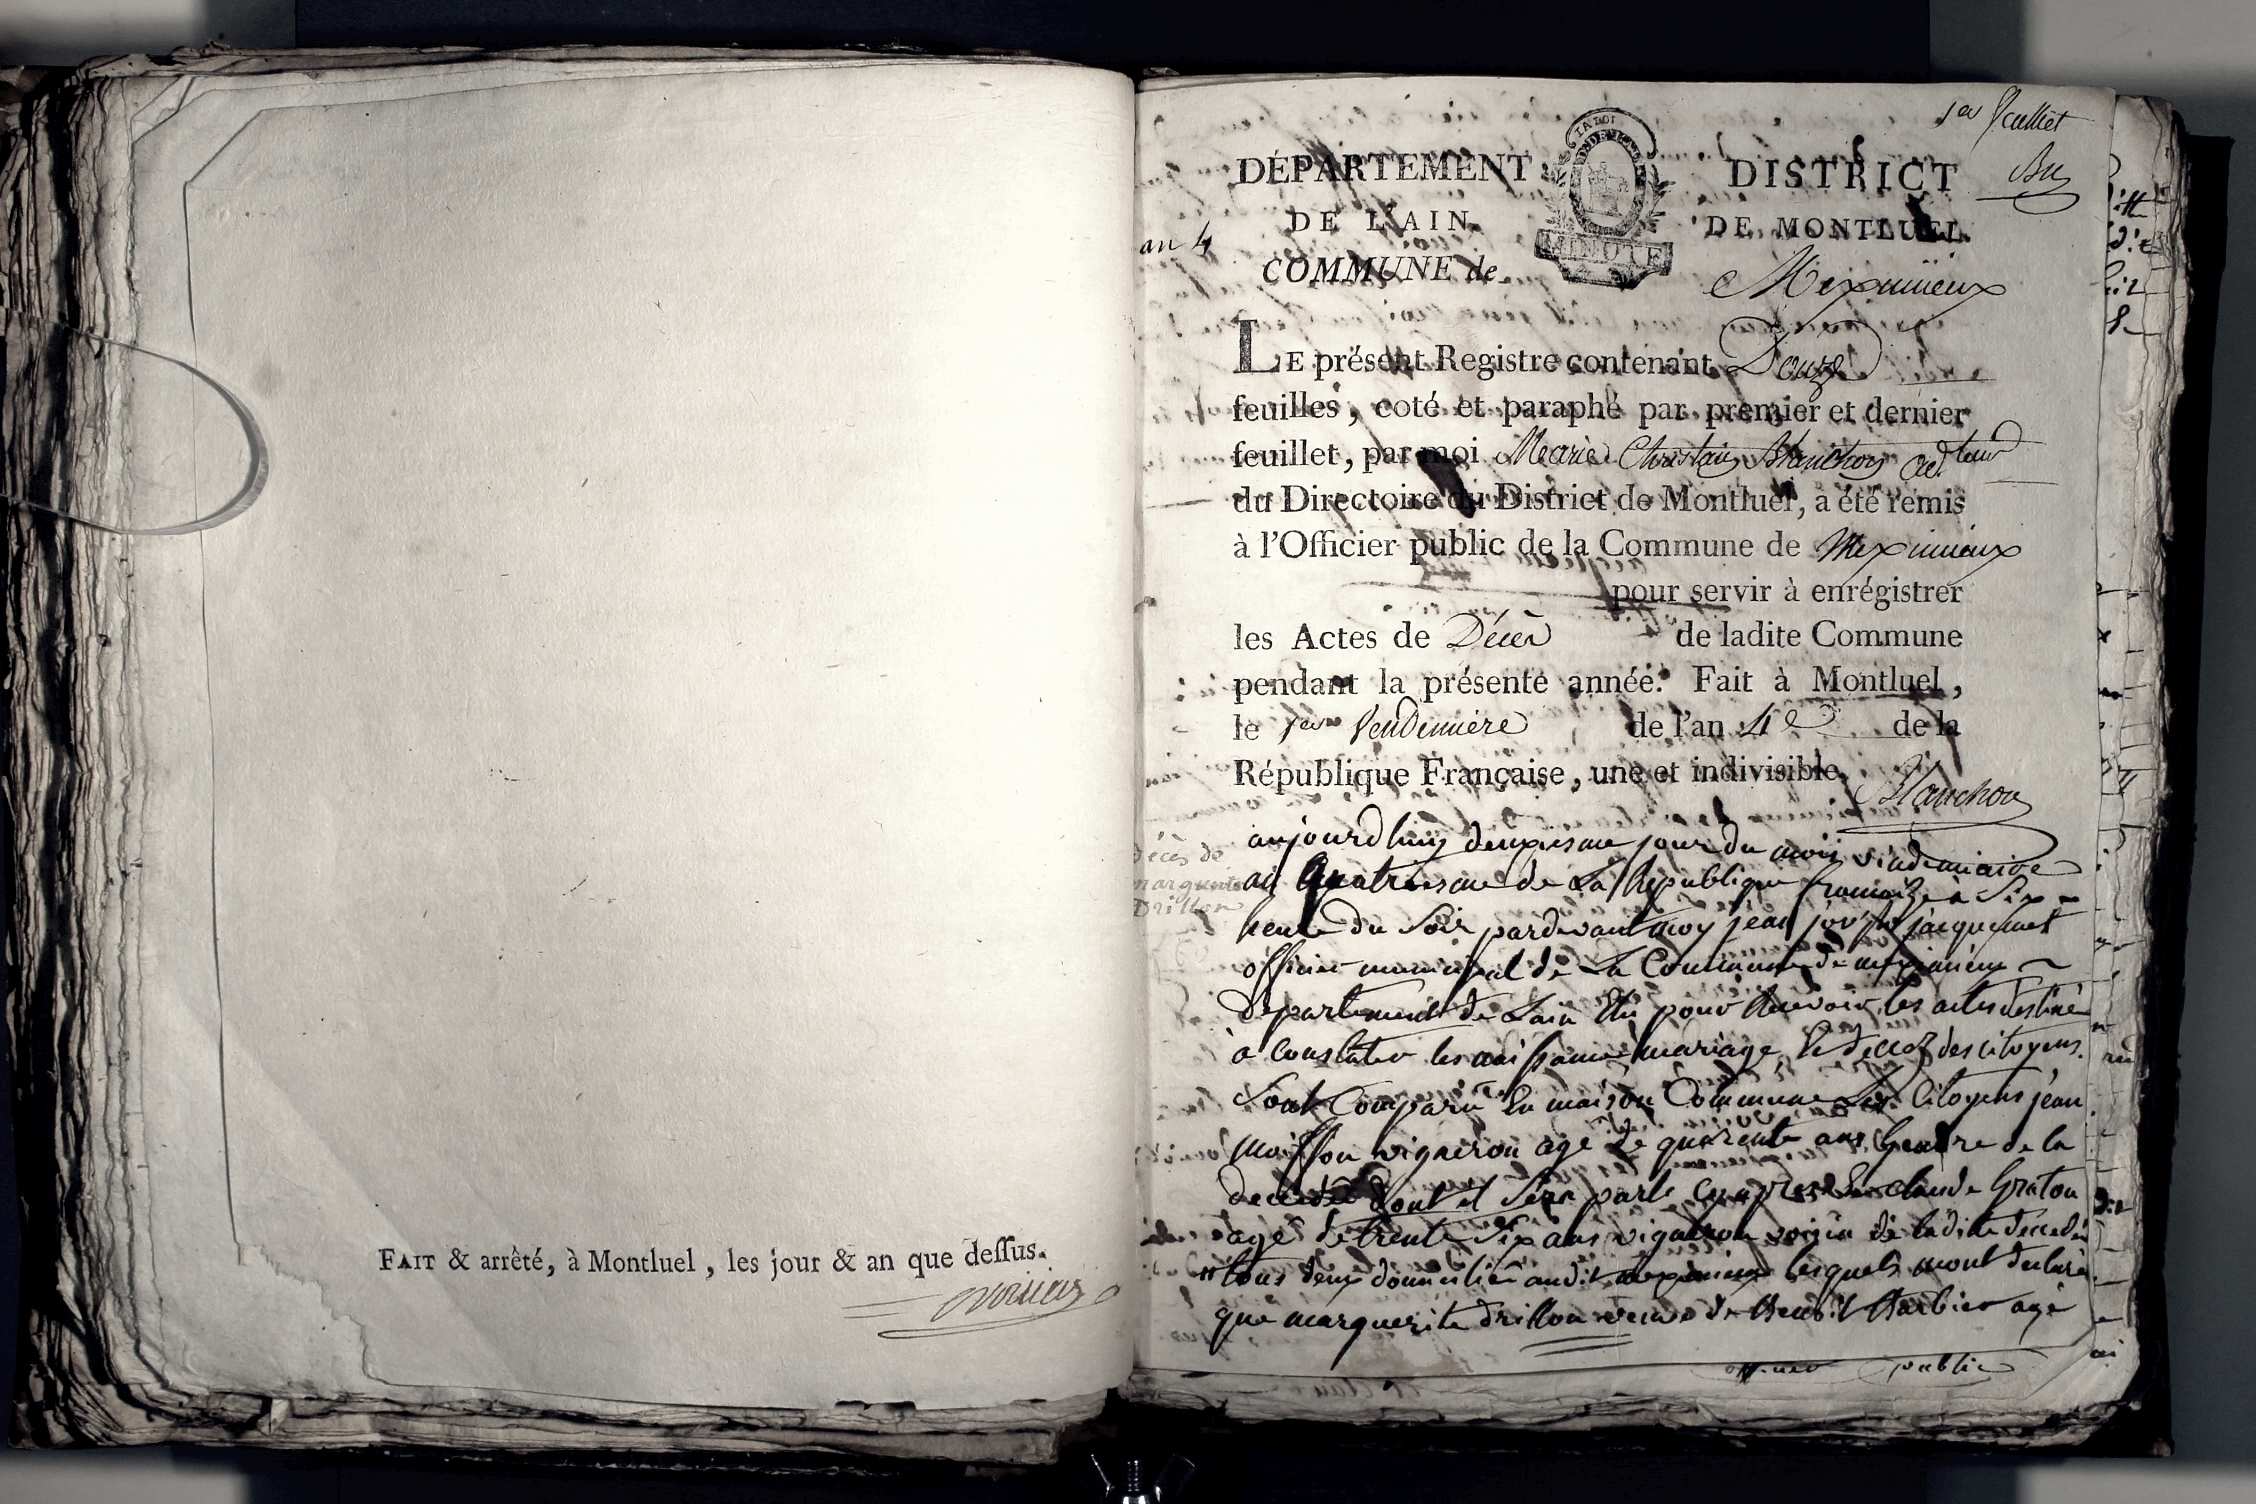 FAIT & arrêté, à Montluel, les jour & an que dessus.
1er feuillet
DÉPARTEMENT
DE L'AIN
an 4
COMMUNE de
LA LOI
MINUTE
DISTRICT
DE MONTLUEL
Meximieux
LE présent Registre contenant Douze
feuilles, coté et paraphé par premier et dernier
feuillet, par moi Marie Chrystain Blanchon
du Directoire du District de Montluel, a été remis
à l'Officier public de la Commune de Meximieux
pour servir à enrégistrer
les Actes de Décès de ladite Commune
pendant la présente année. Fait à Montluel,
le 1er Vendemiere de l'an 4e de la
République Française, une et indivisible.
Blanchon
décès de
marguerite
Drillon
aujourdhuy deuxiesme jour du mois vindemiaire
an quatriesme de La Republique francaize a Six
heure du Soir pardevant moy jean joseph jacquemet
officier municipal de La Commune de meximieux
departement de Lain Elu pour Recevoir les actes destiné
a constater les naissance mariage et decez des citoyens
Sont Comparu En maison Commune Les Citoyens jean
moisson vigneron agé de quarente ans Gendre de la
decedée dont il Sera parlé cy apres et claude Graton
agé de trente Six ans vigneron voisin de ladite decedée
tous deux domicilié audit meximieux lesquels mont declaré
que marguerite drillon veuve de Benoit Barbier agé
officier public